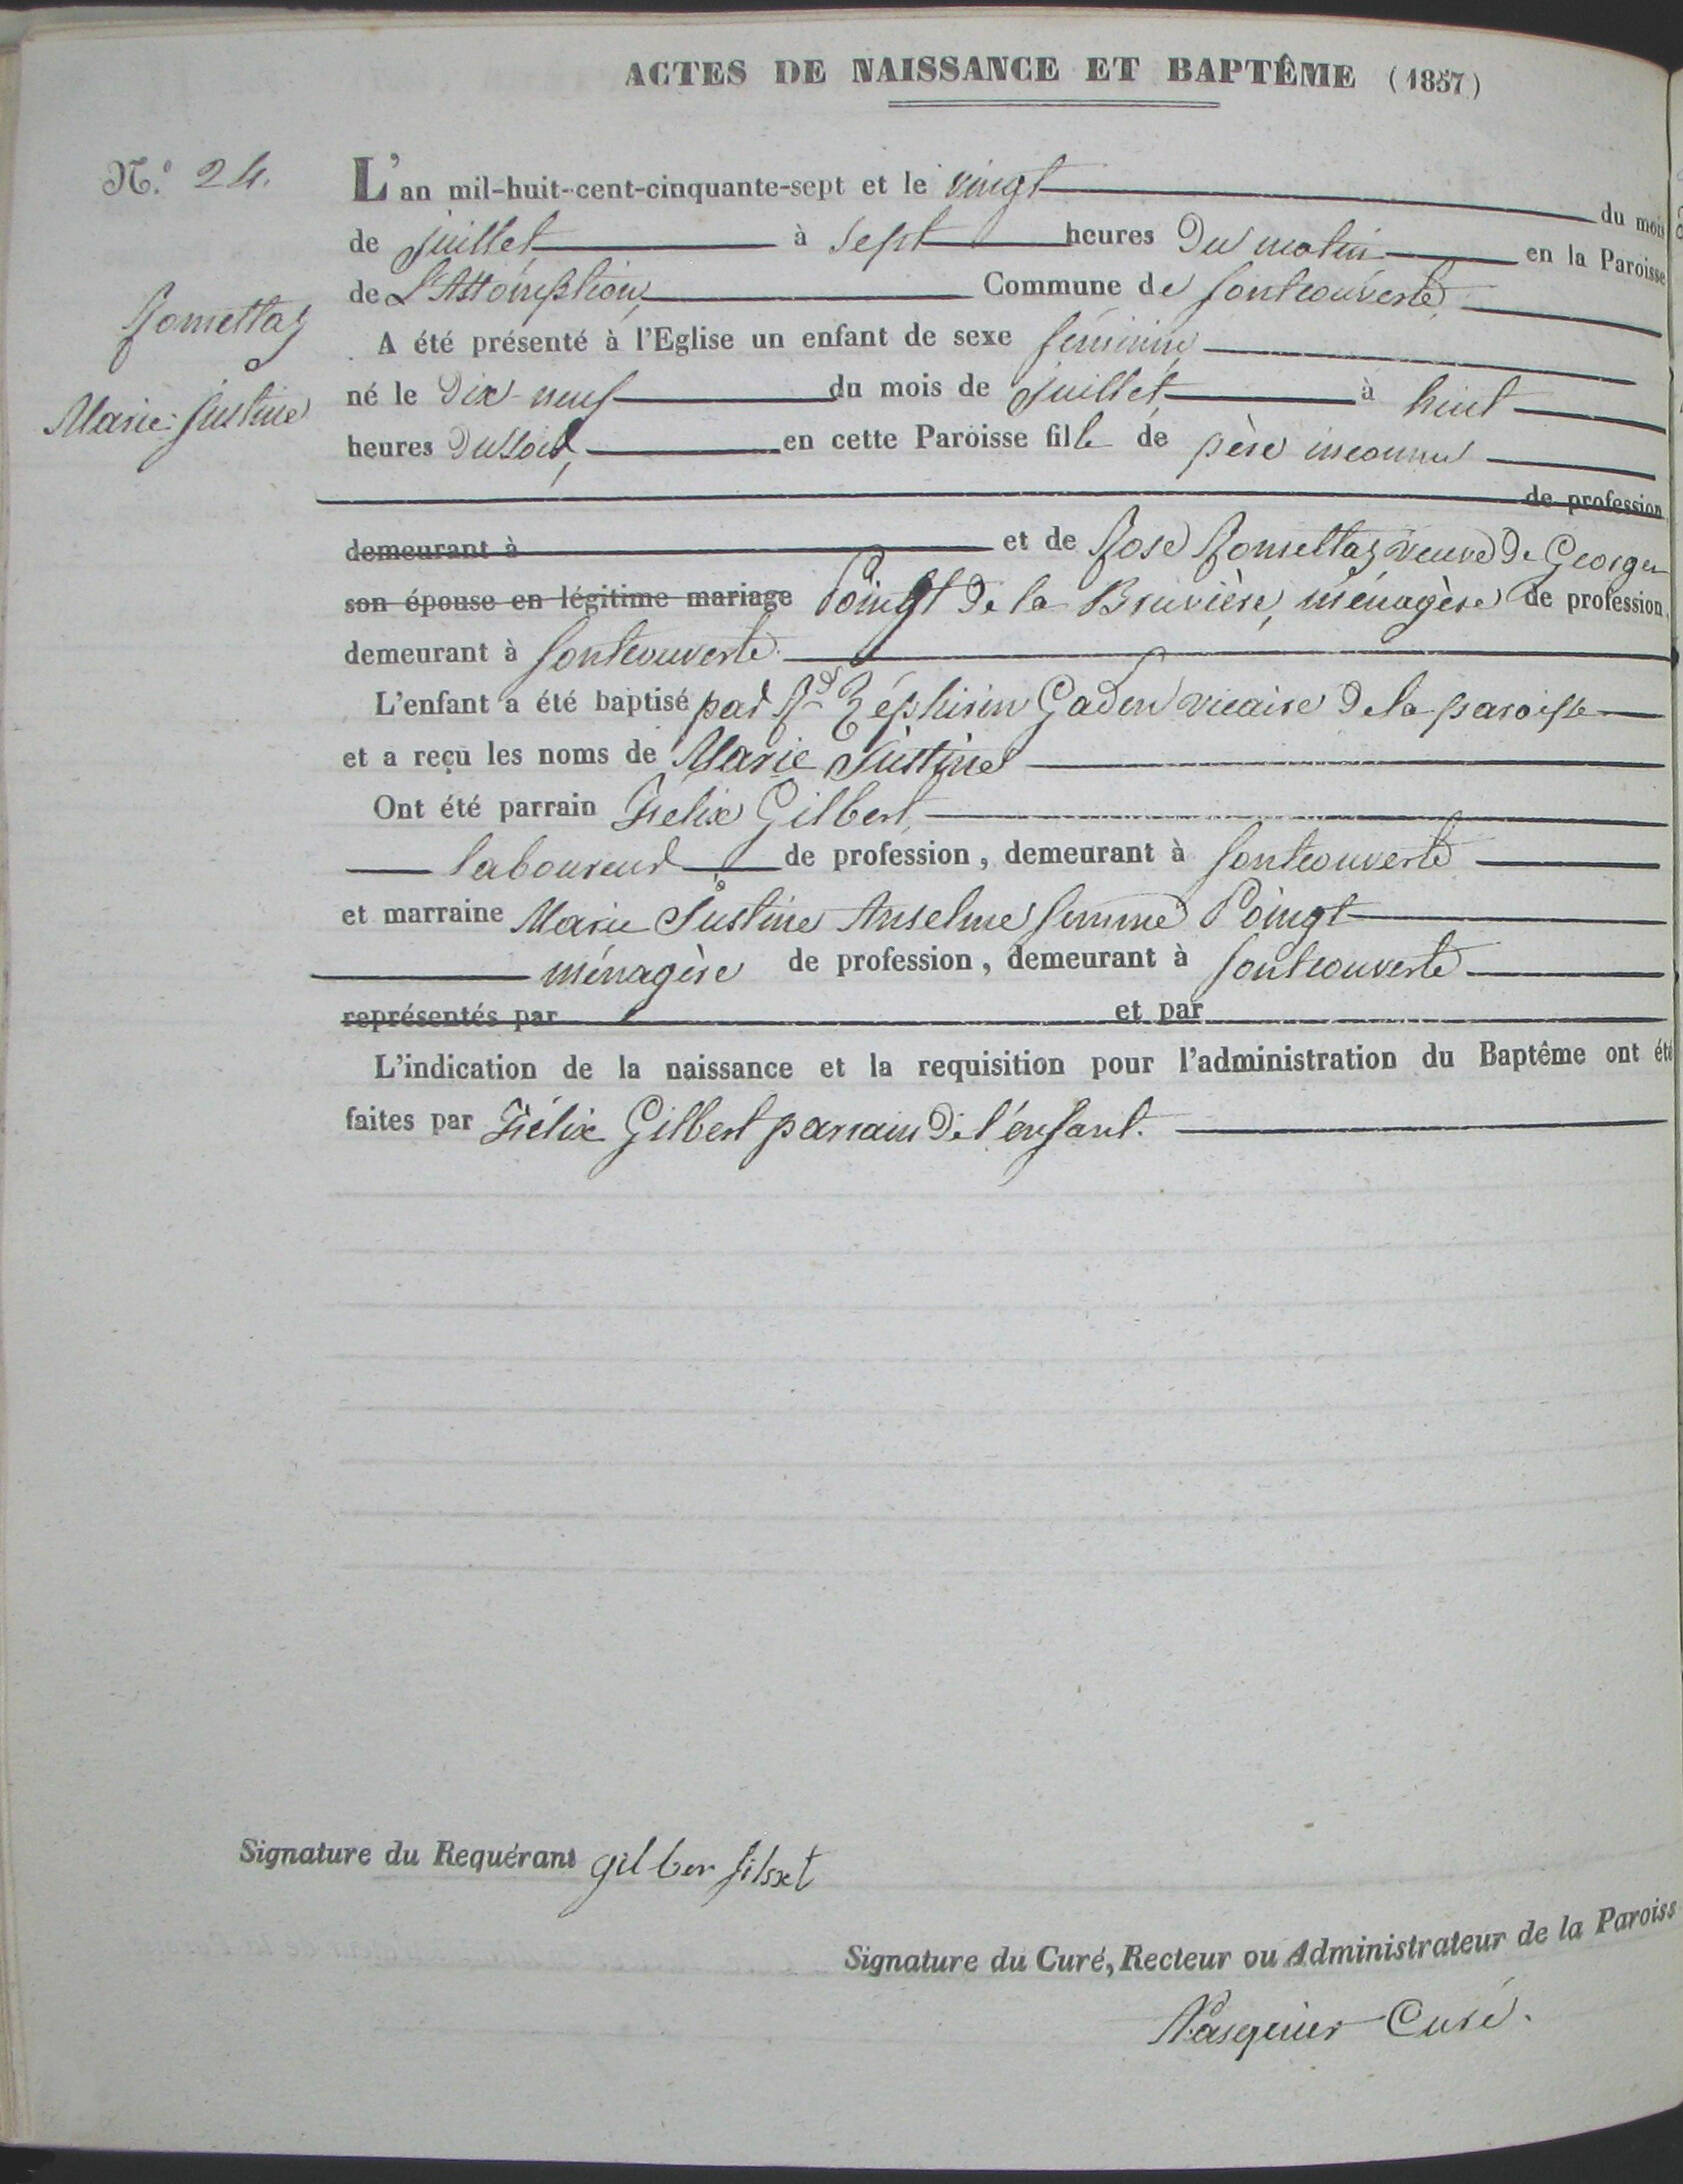 ACTES DE NAISSANCE ET BAPTÊME (1857)
N.° 24.
L'an mil-huit-cent-cinquante-sept et le vingt du mois
de juillet à sept heures du matin en la Paroisse
de L'Assomption, Commune de Fontcouverte,
Romettaz
A été présenté à l'Eglise un enfant de sexe féminin,
né le dix-neuf du mois de juillet à huit
Marie Justine
heures du soir, en cette Paroisse fille de père inconnu
de profession
demeurant à et de Rose Romettaz veuve de Georges
son épouse en légitime mariage Poingt de la Bruvière, ménagère de profession,
demeurant à Fontcouverte.
L'enfant a été baptisé par Rd Zéphirin Gaden vicaire de la paroisse
et a reçu les noms de Marie Justine
Ont été parrain Félix Gilbert,
laboureur de profession, demeurant à Fontcouverte
et marraine Marie Justine Anselme femme Poingt
ménagère de profession, demeurant à Fontcouverte
représentés par et par
L'indication de la naissance et la requisition pour l'administration du Baptême ont été
faites par Félix Gilbert parrain de l'enfant.
Signature du Requérant gilber
Signature du Curé, Recteur ou Administrateur de la Paroiss
Pasquier Curé.